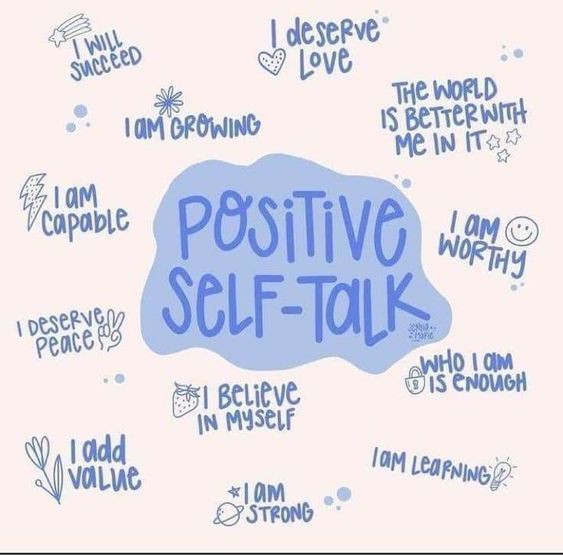 I WILL
SUCCEED
I deserve
Love
I am GROWING
THE WORLD
IS BETTER WITH
ME IN IT
I am
capable
POSITIVE
SELF-TALK
JENNA
MARIE
I am
WORTHY
I DESERVE
Peace
WHO I am
IS ENOUGH
I BELIEVE
IN MYSELF
I add
value
I am LEARNING
I am
STRONG